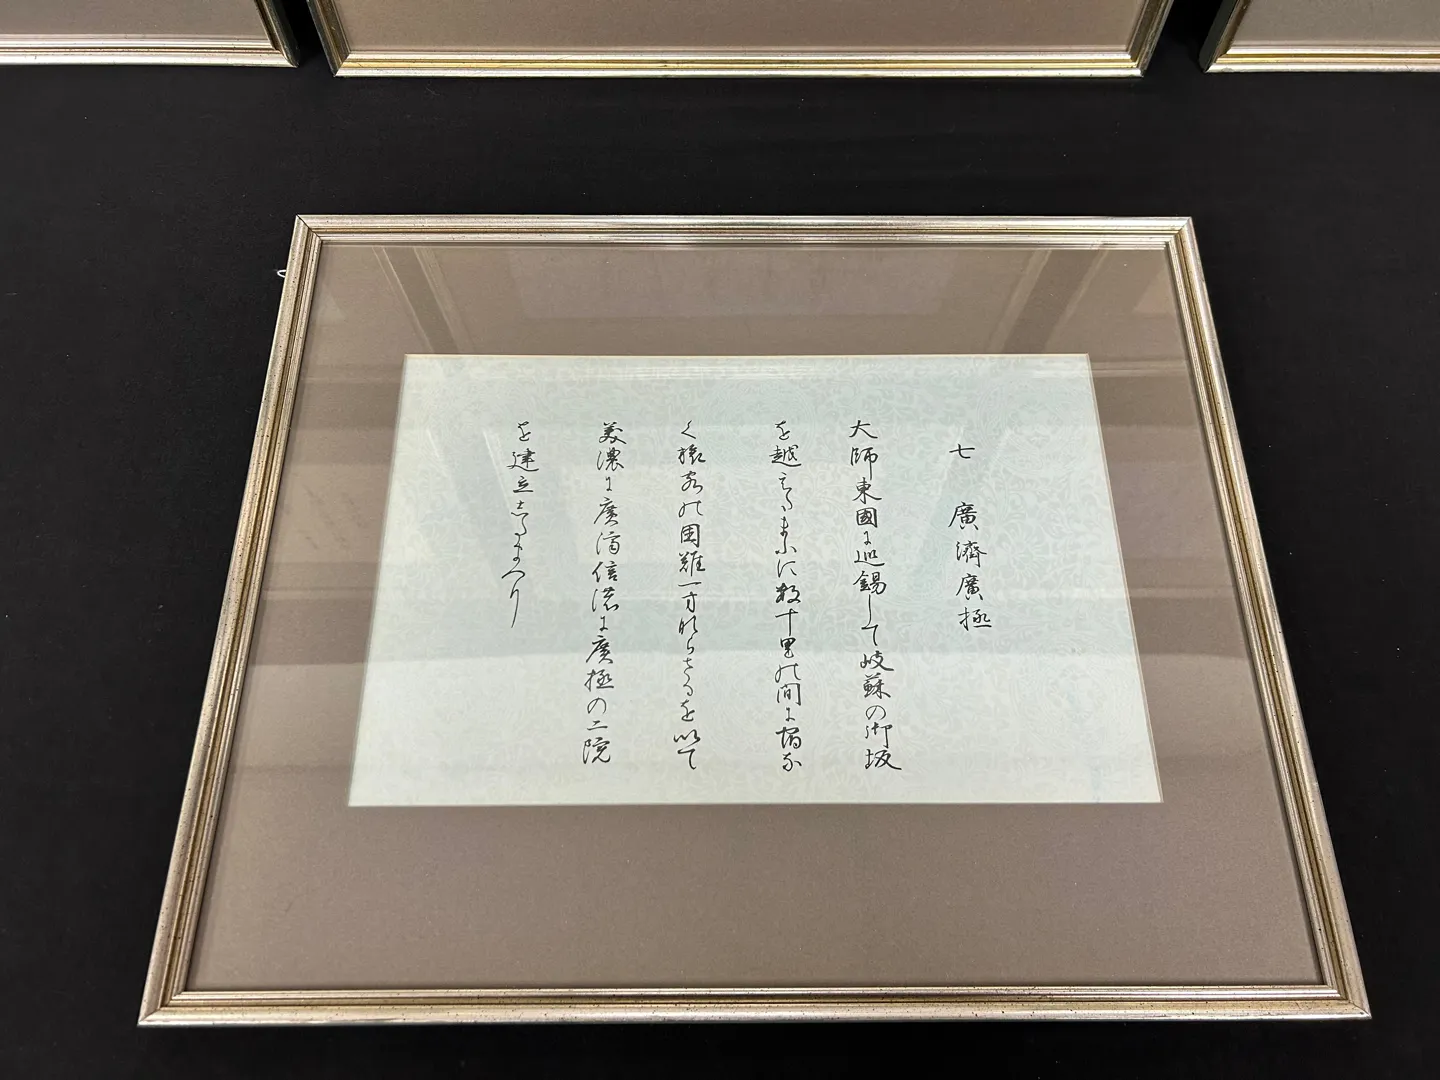 七　廣濟廣極
大師東國に巡錫して岐蘇の御坂
を越えたまふに数十里の間に宿な
く旅客の困難一方ならさるを以て
美濃に廣済信濃に廣極の二院
を建立したまへり